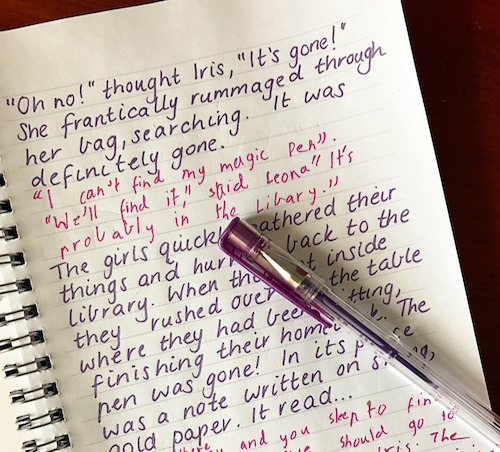 "Oh no!" thought Iris, "It's gone!"
She frantically rummaged through
her bag, searching. It was
definitely gone.
"I can't find my magic pen".
"We'll find it," said Leona" It's
probably in the library."
The girls quickl gathered their
things and hur back to the
library. When th t inside
they rushed over the table
where they had bee tting,
finishing their home k. The
pen was gone! In its p e
was a note written on s g,
gold paper. It read...
here, and you sleep to fin
should go to
Iris. The